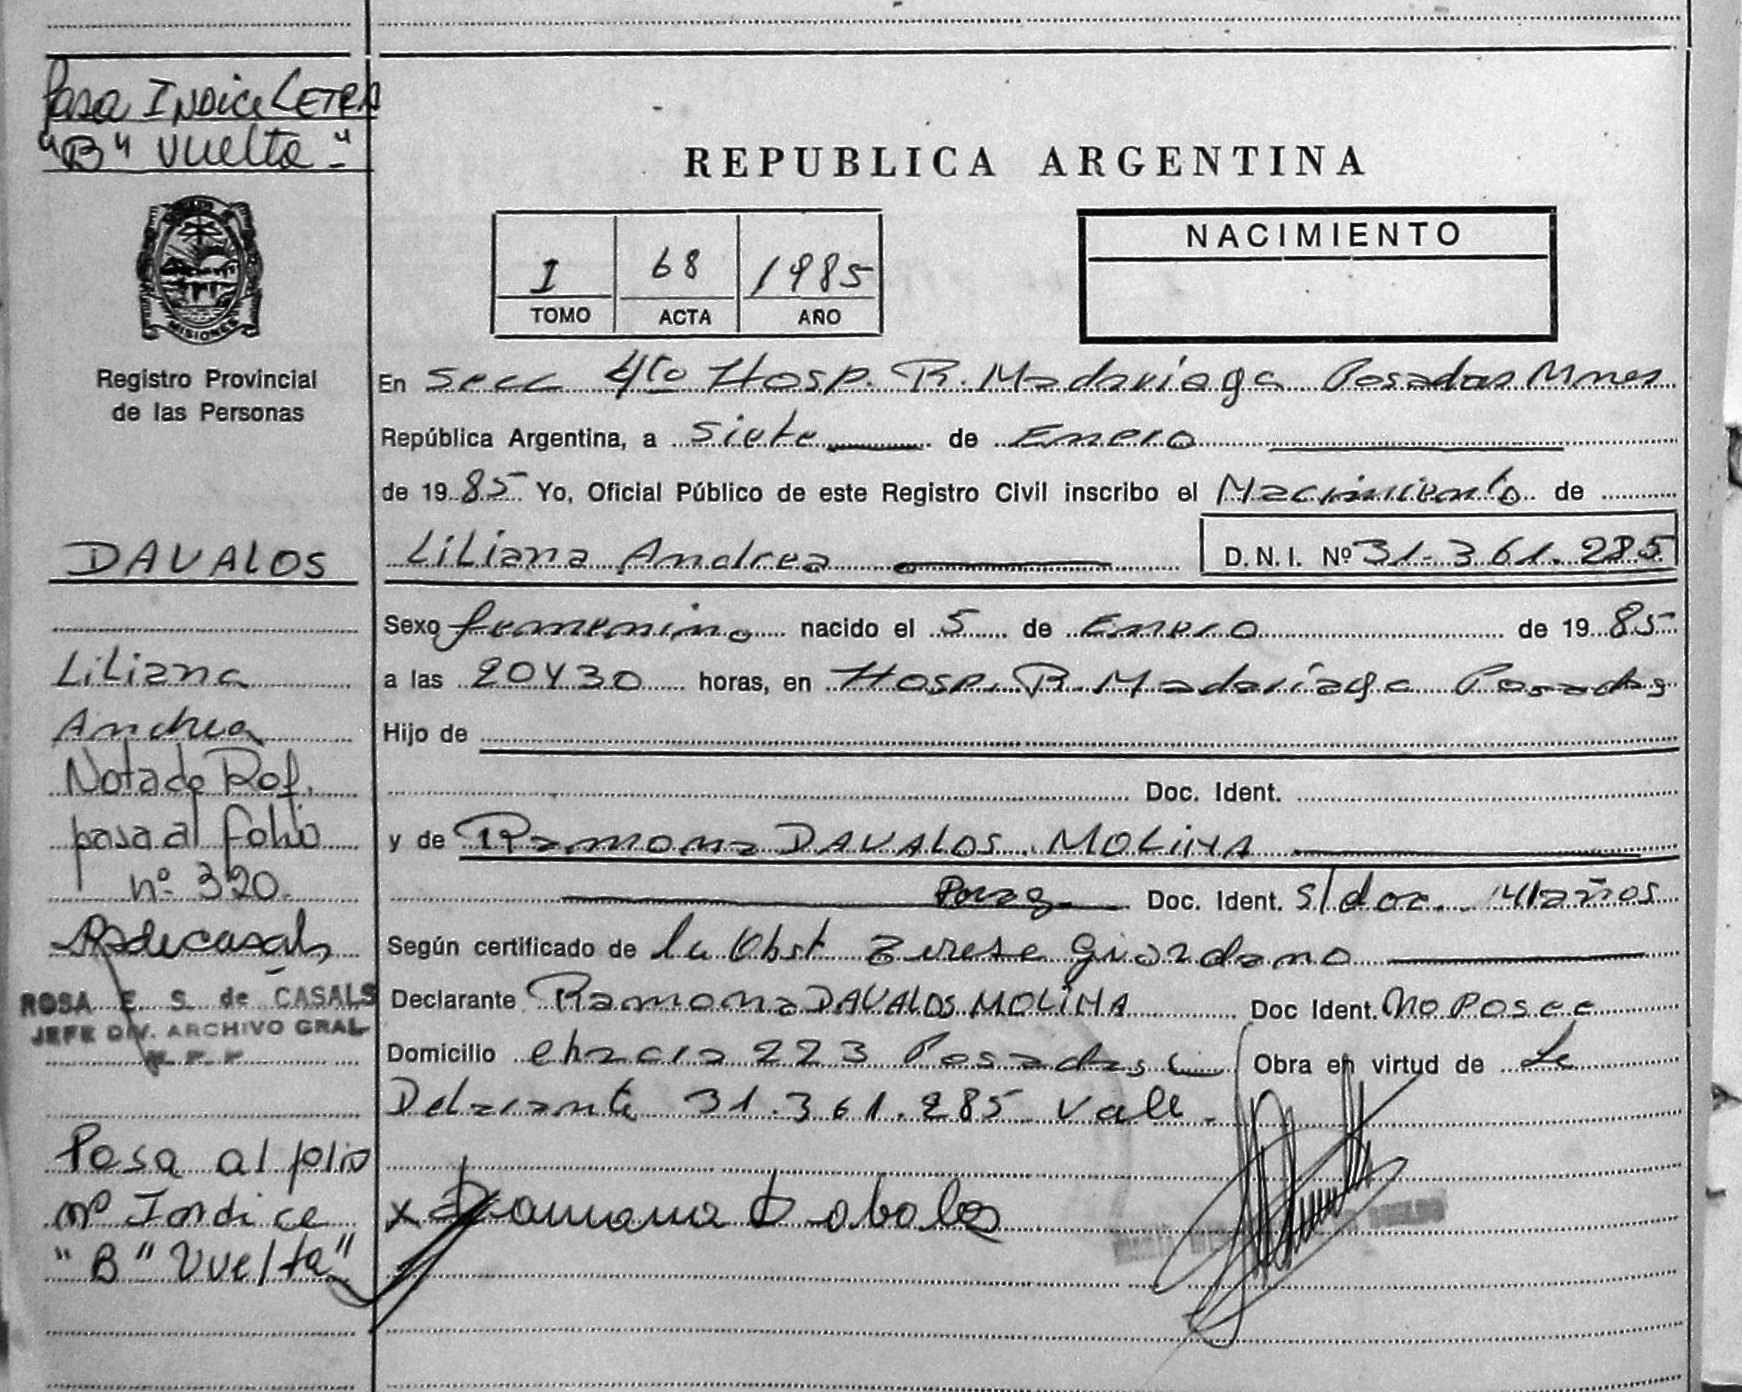 Pasa INDice LETRA
"B" Vuelta"
REPUBLICA ARGENTINA
MISIONES
Registro Provincial
de las Personas
I 68 1985
TOMO ACTA AÑO
NACIMIENTO
En Secc 4ta Hosp. R. Madariaga Posadas Mnes
República Argentina, a Siete de Enero
de 1985 Yo, Oficial Público de este Registro Civil inscribo el Nacimiento de
DAVALOS
LiLiana Andrea D.N.I. Nº 31.361.285
Sexo femenino nacido el 5 de Enero de 1985
LiLiana
a las 20 Y 30 horas, en Hosp. R. Madariaga Posadas
Andrea
Hijo de
Nota de Ref.
Doc. Ident.
pasa al folio
y de Ramona DAVALOS MOLiNA
nº 320.
Parag Doc. Ident. s/doc. 41 años
Según certificado de la Obst Giordano
ROSA E. S. de CASALS
JEFE DIV. ARCHIVO GRAL
Declarante Ramona DAVALOS MOLiNA Doc Ident. No Posee
Domicilio 223 Posadas Obra en virtud de
31.361.285 Vale.
Pasa al folio
nº Indice
"B" Vuelta"
x Ramona Dabalos